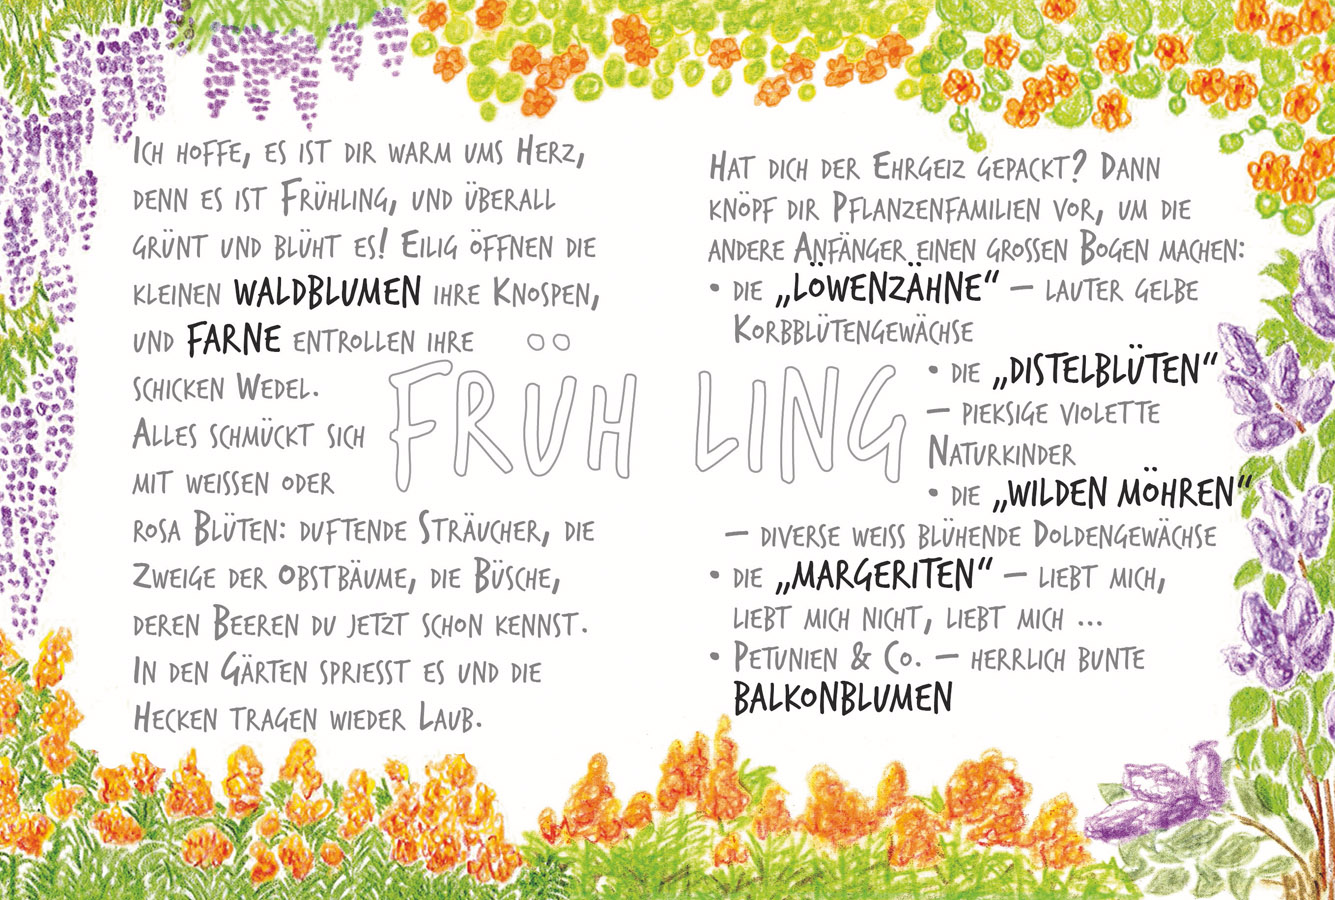 Ich hoffe, es ist dir warm ums Herz,
denn es ist Frühling, und überall
grünt und blüht es! Eilig öffnen die
kleinen WALDBLUMEN ihre Knospen,
und FARNE entrollen ihre
schicken Wedel.
Alles schmückt sich
mit weissen oder
rosa Blüten: duftende Sträucher, die
Zweige der Obstbäume, die Büsche,
deren Beeren du jetzt schon kennst.
In den Gärten spriesst es und die
Hecken tragen wieder Laub.
FRÜHLING
Hat dich der Ehrgeiz gepackt? Dann
knöpf dir Pflanzenfamilien vor, um die
andere Anfänger einen grossen Bogen machen:
• die „LÖWENZÄHNE“ – lauter gelbe
Korbblütengewächse
• die „DISTELBLÜTEN“
– pieksige violette
Naturkinder
• die „WILDEN MÖHREN“
– diverse weiss blühende Doldengewächse
• die „MARGERITEN“ – liebt mich,
liebt mich nicht, liebt mich ...
• Petunien & Co. – herrlich bunte
BALKONBLUMEN